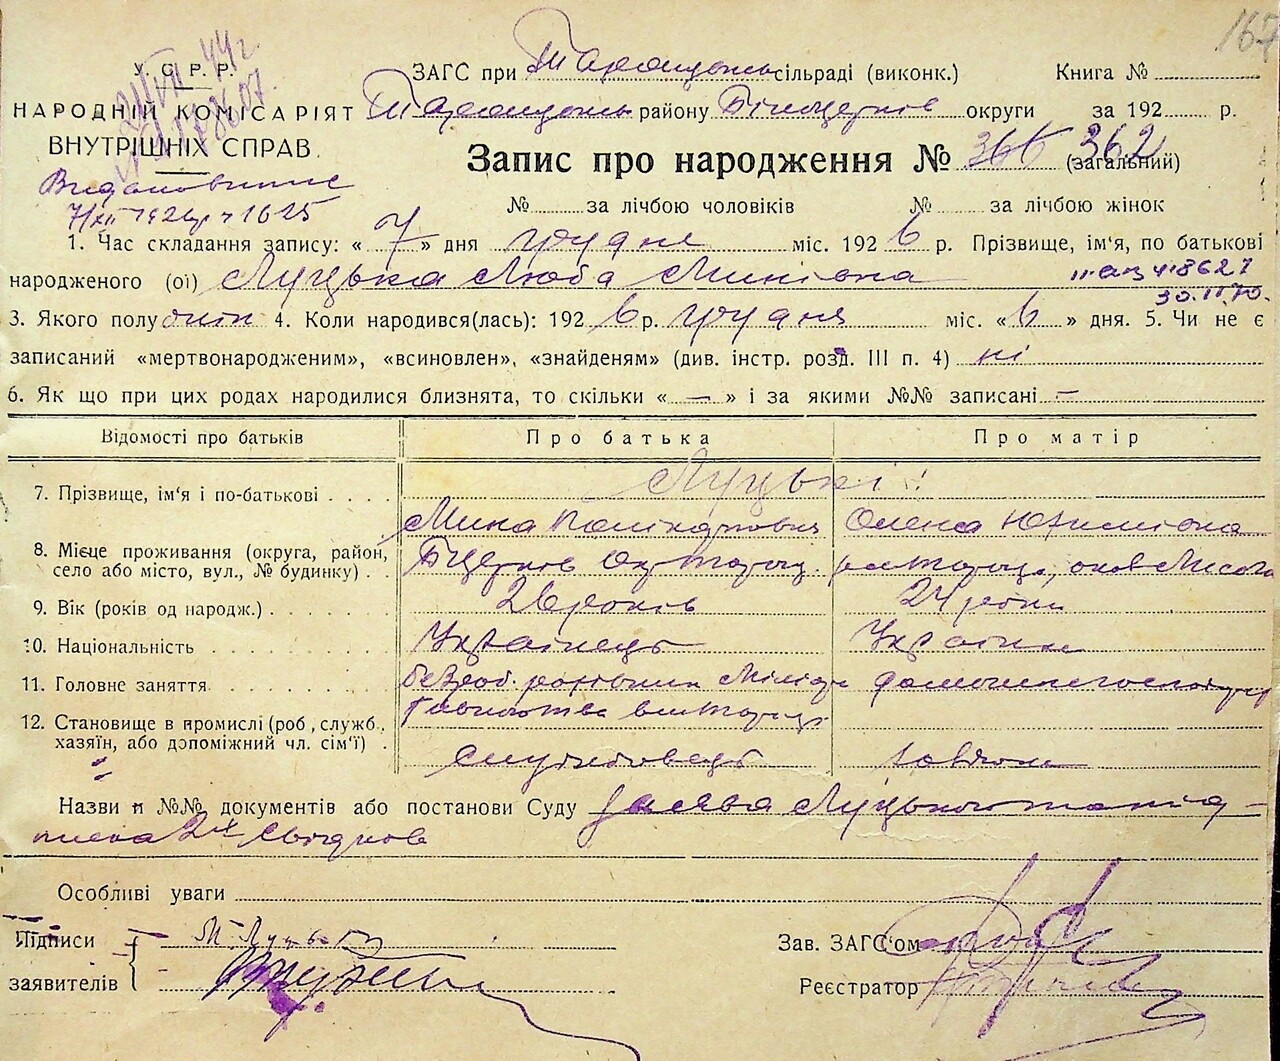 167
У.С.Р.Р.
НАРОДНІЙ КОМІСАРІЯТ
ВНУТРІШНІХ СПРАВ.
ЗАГС при Таращанськ сільраді (виконк.) Книга №
Таращанськ району Білоцерків округи за 192 р.
Запис про народження № 366 362 (загальний)
7/XII 1926р ч 1625
№ за лічбою чоловіків № за лічбою жінок
1. Час складання запису: « 7 » дня грудня міс. 1926 р. Прізвище, ім'я, по батькові
народженого (ої) Луцька Люба Минівна
418627
30.11.70.
3. Якого полу 4. Коли народився(лась): 1926 р. грудня міс. « 6 » дня. 5. Чи не є
записаний «мертвонародженим», «всиновлен», «знайденям» (див. інстр. розд. III п. 4) ні
6. Як що при цих родах народилися близнята, то скільки « — » і за якими №№ записані —
Відомості про батьків Про батька Про матір
7. Прізвище, ім'я і по-батькові Луцькі
Мина Полікарпович Олена Юхимівна
8. Місце проживання (округа, район,
село або місто, вул., № будинку)
9. Вік (років од народж.) 26 років 24 роки
10. Національність Українець Українка
11. Головне заняття
12. Становище в промислі (роб, служб,
хазяїн, або допоміжний чл. сім'ї)
Назви и №№ документів або постанови Суду заява Луцького та під-
писка 2х свідків
Особливі уваги
Підписи М. Луцький
заявителів
Зав. ЗАГС'ом
Реєстратор